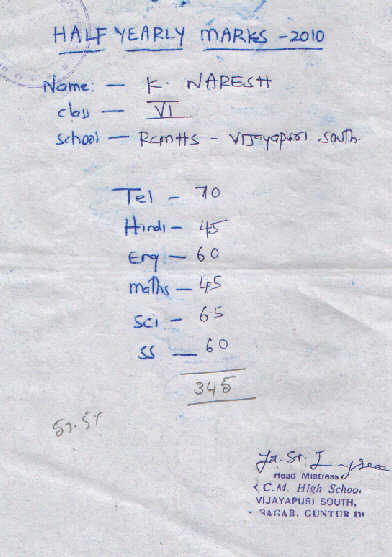 HALF YEARLY MARKS - 2010
Name: - K. NARESH
class - VI
school - RCMHS - VIJayapuri South.
Tel - 70
Hindi - 45
Eng - 60
maths - 45
Sci - 65
SS - 60
345
Head Mistress
C.M. High School
VIJAYAPURI SOUTH,
SAGAR, GUNTUR